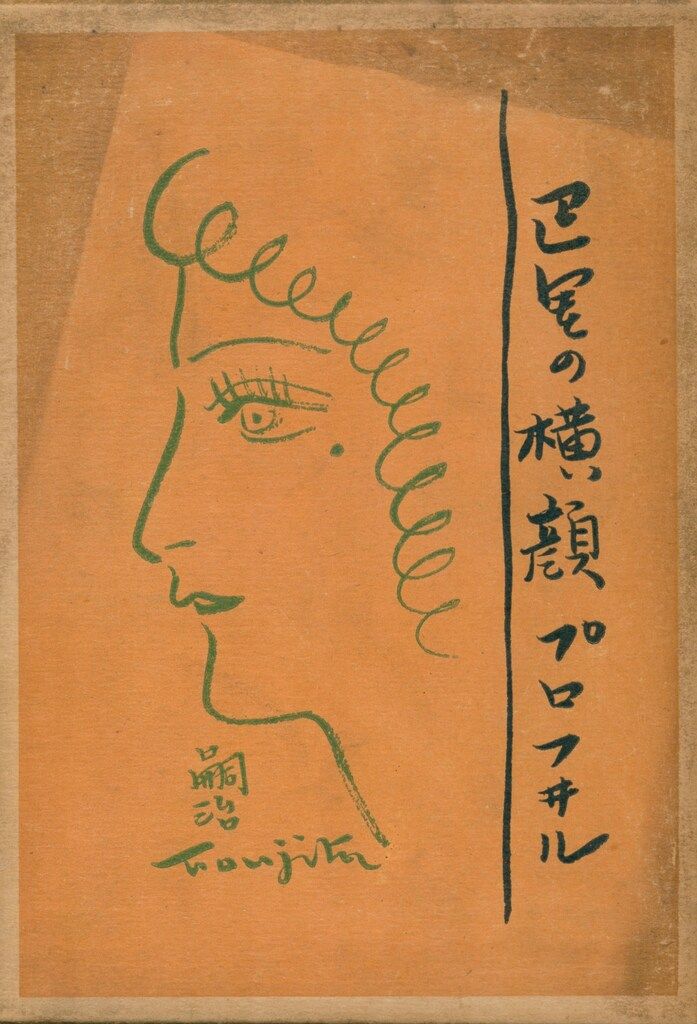 巴里の横顔 プロフヰル
嗣治
Foujita